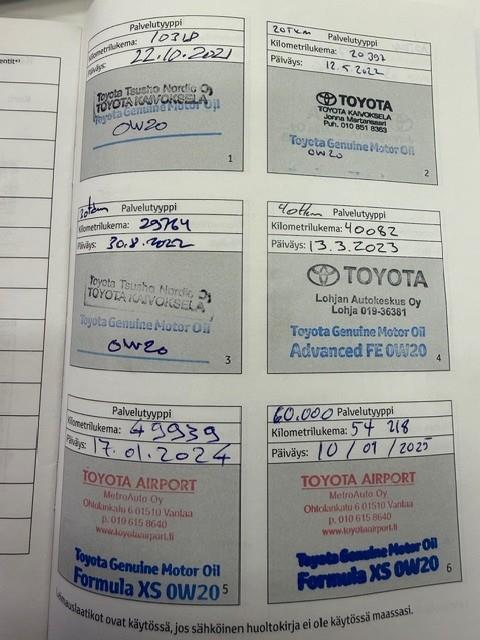 Palvelutyyppi
Kilometrilukema:
Päiväys: 22.10.2021
Toyota Tsusho Nordic Oy
TOYOTA KAIVOKSELA
Toyota Genuine Motor Oil
0W20
1
20tkm Palvelutyyppi
Kilometrilukema: 20397
Päiväys: 12.5.2022
TOYOTA
TOYOTA KAIVOKSELA
Jonna Martansaari
Puh. 010 851 8363
Toyota Genuine Motor Oil
0W20
2
30tkm Palvelutyyppi
Kilometrilukema: 29764
Päiväys: 30.8.2022
Toyota Tsusho Nordic Oy
TOYOTA KAIVOKSELA
Toyota Genuine Motor Oil
0W20
3
40tkm Palvelutyyppi
Kilometrilukema: 40082
Päiväys: 13.3.2023
TOYOTA
Lohjan Autokeskus Oy
Lohja 019-36381
Toyota Genuine Motor Oil
Advanced FE 0W20
4
Palvelutyyppi
Kilometrilukema: 49939
Päiväys: 17.01.2024
TOYOTA AIRPORT
MetroAuto Oy
Ohtolankatu 6 01510 Vantaa
p. 010 615 8640
www.toyotaairport.fi
Toyota Genuine Motor Oil
Formula XS 0W20
5
60.000 Palvelutyyppi
Kilometrilukema: 54 218
Päiväys: 10/01/2025
TOYOTA AIRPORT
MetroAuto Oy
Ohtolankatu 6 01510 Vantaa
p. 010 615 8640
www.toyotaairport.fi
Toyota Genuine Motor Oil
Formula XS 0W20
6
ovat käytössä, jos sähköinen huoltokirja ei ole käytössä maassasi.